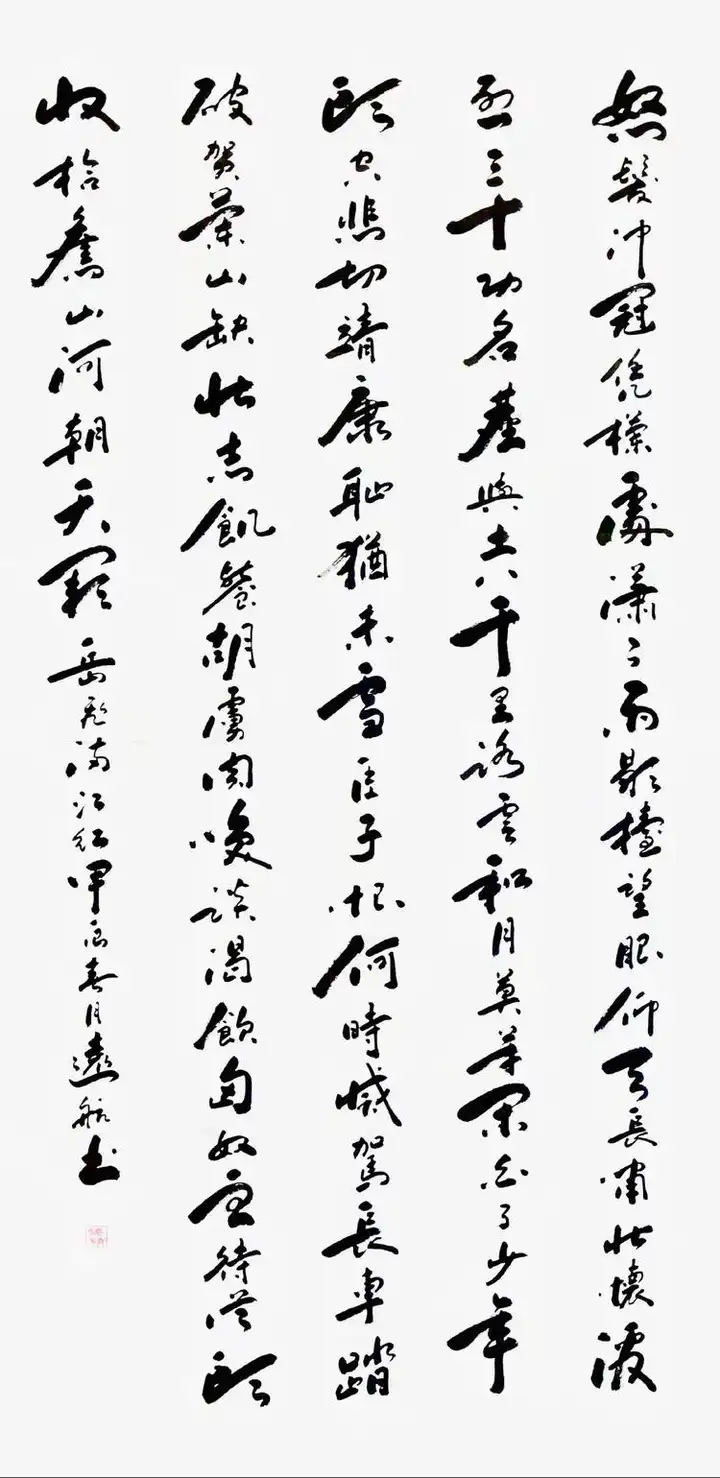 怒髮冲冠凭欄處瀟〻雨歇擡望眼仰天長嘯壯懷激
烈三十功名塵與土八千里路雲和月莫等閑白了少年
頭空悲切靖康耻猶未雪臣子恨何時憾駕長車踏
破賀蘭山缺壯志飢餐胡虜肉咲談渴飲匈奴血待從頭
收拾舊山河朝天闕岳飛滿江紅甲辰春月遠航书